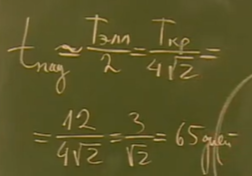 t_пад ≃ T_элл/2 = T_кр/4√2 =
= 12/4√2 = 3/√2 = 65 дней